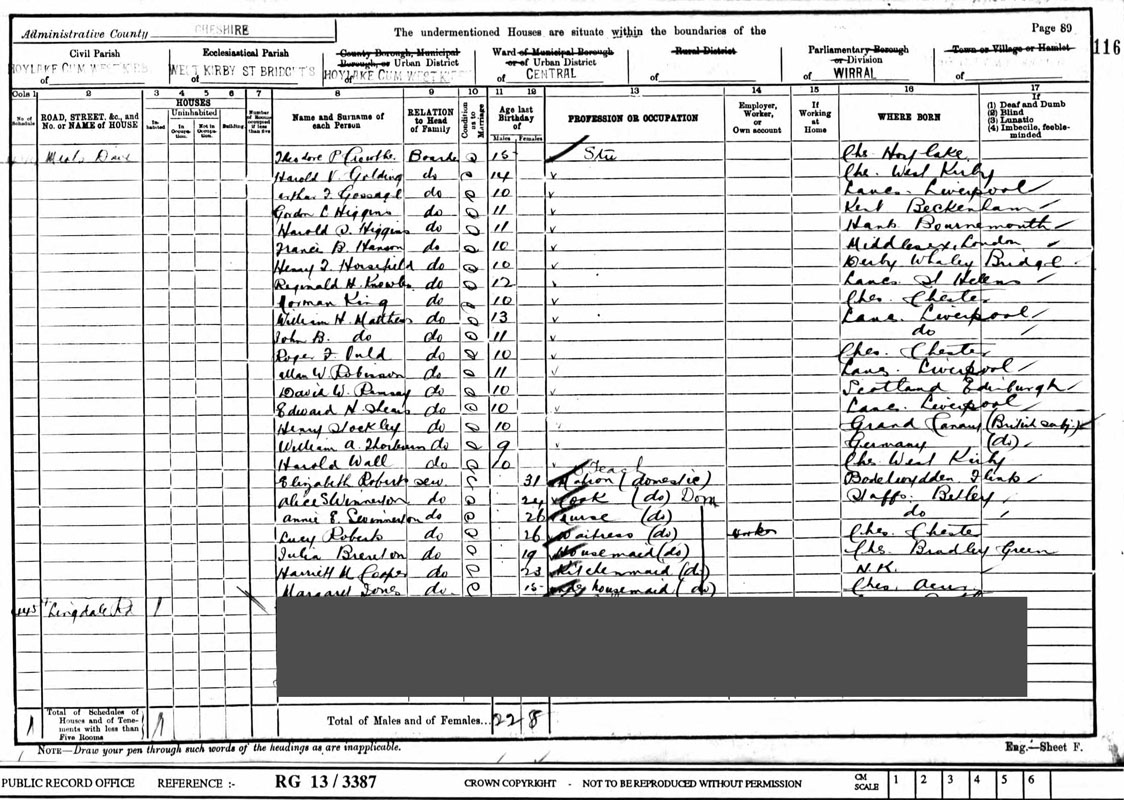 Administrative County CHESHIRE
The undermentioned Houses are situate within the boundaries of the
Page 89
116
Civil Parish
of HOYLAKE CUM WEST KIRBY
Ecclesiastical Parish
of WEST KIRBY ST BRIDGET'S
County Borough, Municipal Borough, or Urban District
of HOYLAKE CUM WEST KIRBY
Ward of Municipal Borough or of Urban District
of CENTRAL
Rural District
of
Parliamentary Borough or Division
of WIRRAL
Town or Village or Hamlet
of
Cols 1 2 3 4 5 6 7 8 9 10 11 12 13 14 15 16 17
No. of Schedule
ROAD, STREET, &c., and No. or NAME of HOUSE
HOUSES
Inhabited
Uninhabited
In Occupation.
Not in Occupation.
Building.
Number of Rooms occupied if less than five
Name and Surname of each Person
RELATION to Head of Family
Condition as to Marriage
Age last Birthday of
Males Females
PROFESSION OR OCCUPATION
Employer, Worker, or Own account
If Working at Home
WHERE BORN
If
(1) Deaf and Dumb
(2) Blind
(3) Lunatic
(4) Imbecile, feeble-minded
Meols Drive Theodore P Boarder 15 Ches. Hoylake
Harold V. Golding do 14 Ches. West Kirby
F. Gossage do 10 Lancs. Liverpool
Gordon C Higgins do 11 Kent Beckenham
Harold J. Higgins do 11 Hants Bournemouth
Francis B. Hanson do 10 Middlesex, London
Henry F. Horsefield do 10 Derby Whaley Bridge
Reginald H. Knowles do 12 Lancs. St Helens
Norman King do 10 Ches. Chester
William H. Matthews do 13 Lancs. Liverpool
John B. do do 11 do
Roger F. Ould do 10 Ches. Chester
Allan W. Robinson do 11 Lancs. Liverpool
David W. Ramsay do 10 Scotland Edinburgh
Edward H. do 10 Lancs. Liverpool
Henry Stockley do 10 Grand Canary (British subj.)
William A. Thorburn do 9 Germany (do)
Harold Wall do 10 Ches West Kirby
Elizabeth Roberts serv 31 Matron (domestic) Flints
Alice S Swinnerton do 24 Cook (do) Dom Staffs. Betley
Annie E. Swinnerton do 26 Nurse (do) do
Lucy Roberts do 26 Waitress (do) worker Ches. Chester
Julia Brereton do 19 Housemaid (do) Ches. Bradley Green
Harriett M Cooper do 23 Kitchenmaid (do) N.K.
Margaret Jones do 15 housemaid (do) Ches.
Lingdale Rd 1
1
Total of Schedules of Houses and of Tenements with less than Five Rooms
1
Total of Males and of Females... 22 8
NOTE—Draw your pen through such words of the headings as are inapplicable.
Eng.—Sheet F.
PUBLIC RECORD OFFICE REFERENCE :- RG 13 / 3387 CROWN COPYRIGHT - NOT TO BE REPRODUCED WITHOUT PERMISSION
CM SCALE 1 2 3 4 5 6